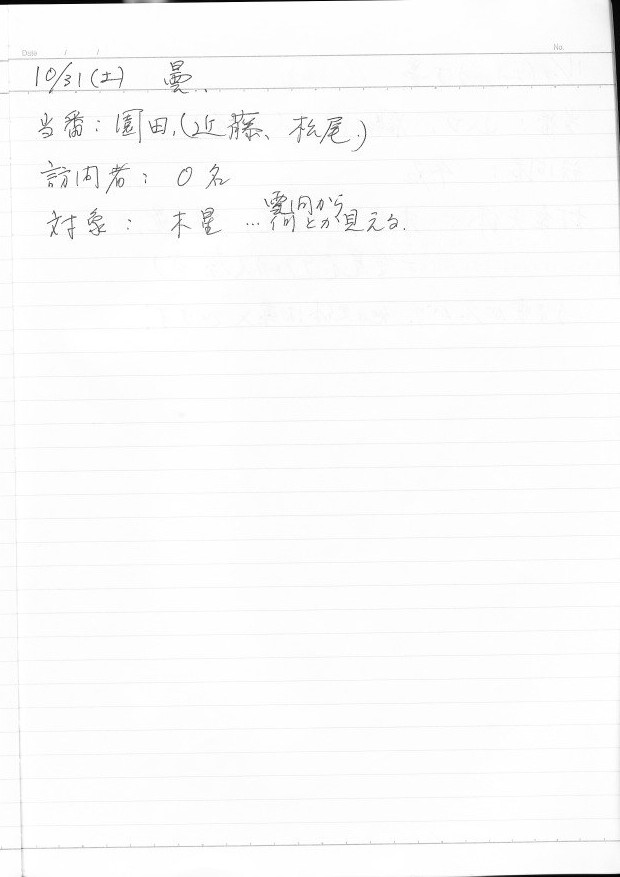 Date / /
No.
10/31(土) 曇、
当番：園田,(近藤、松尾.)
訪問者： 0名
対象： 木星 …雲間から何とか見える.